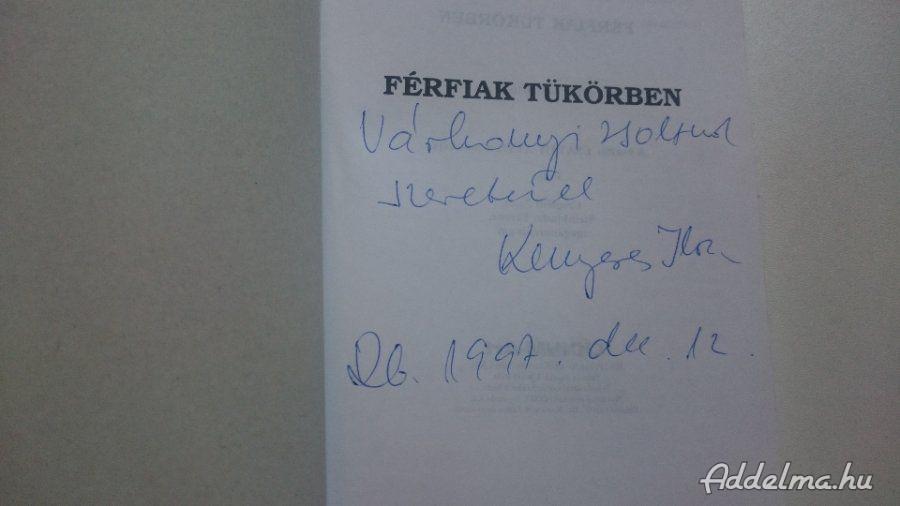 FÉRFIAK TÜKÖRBEN
Várkonyi Zoltánnak
szeretettel
Kenyeres Ilona
Db. 1997. dec. 12.
Addelma.hu